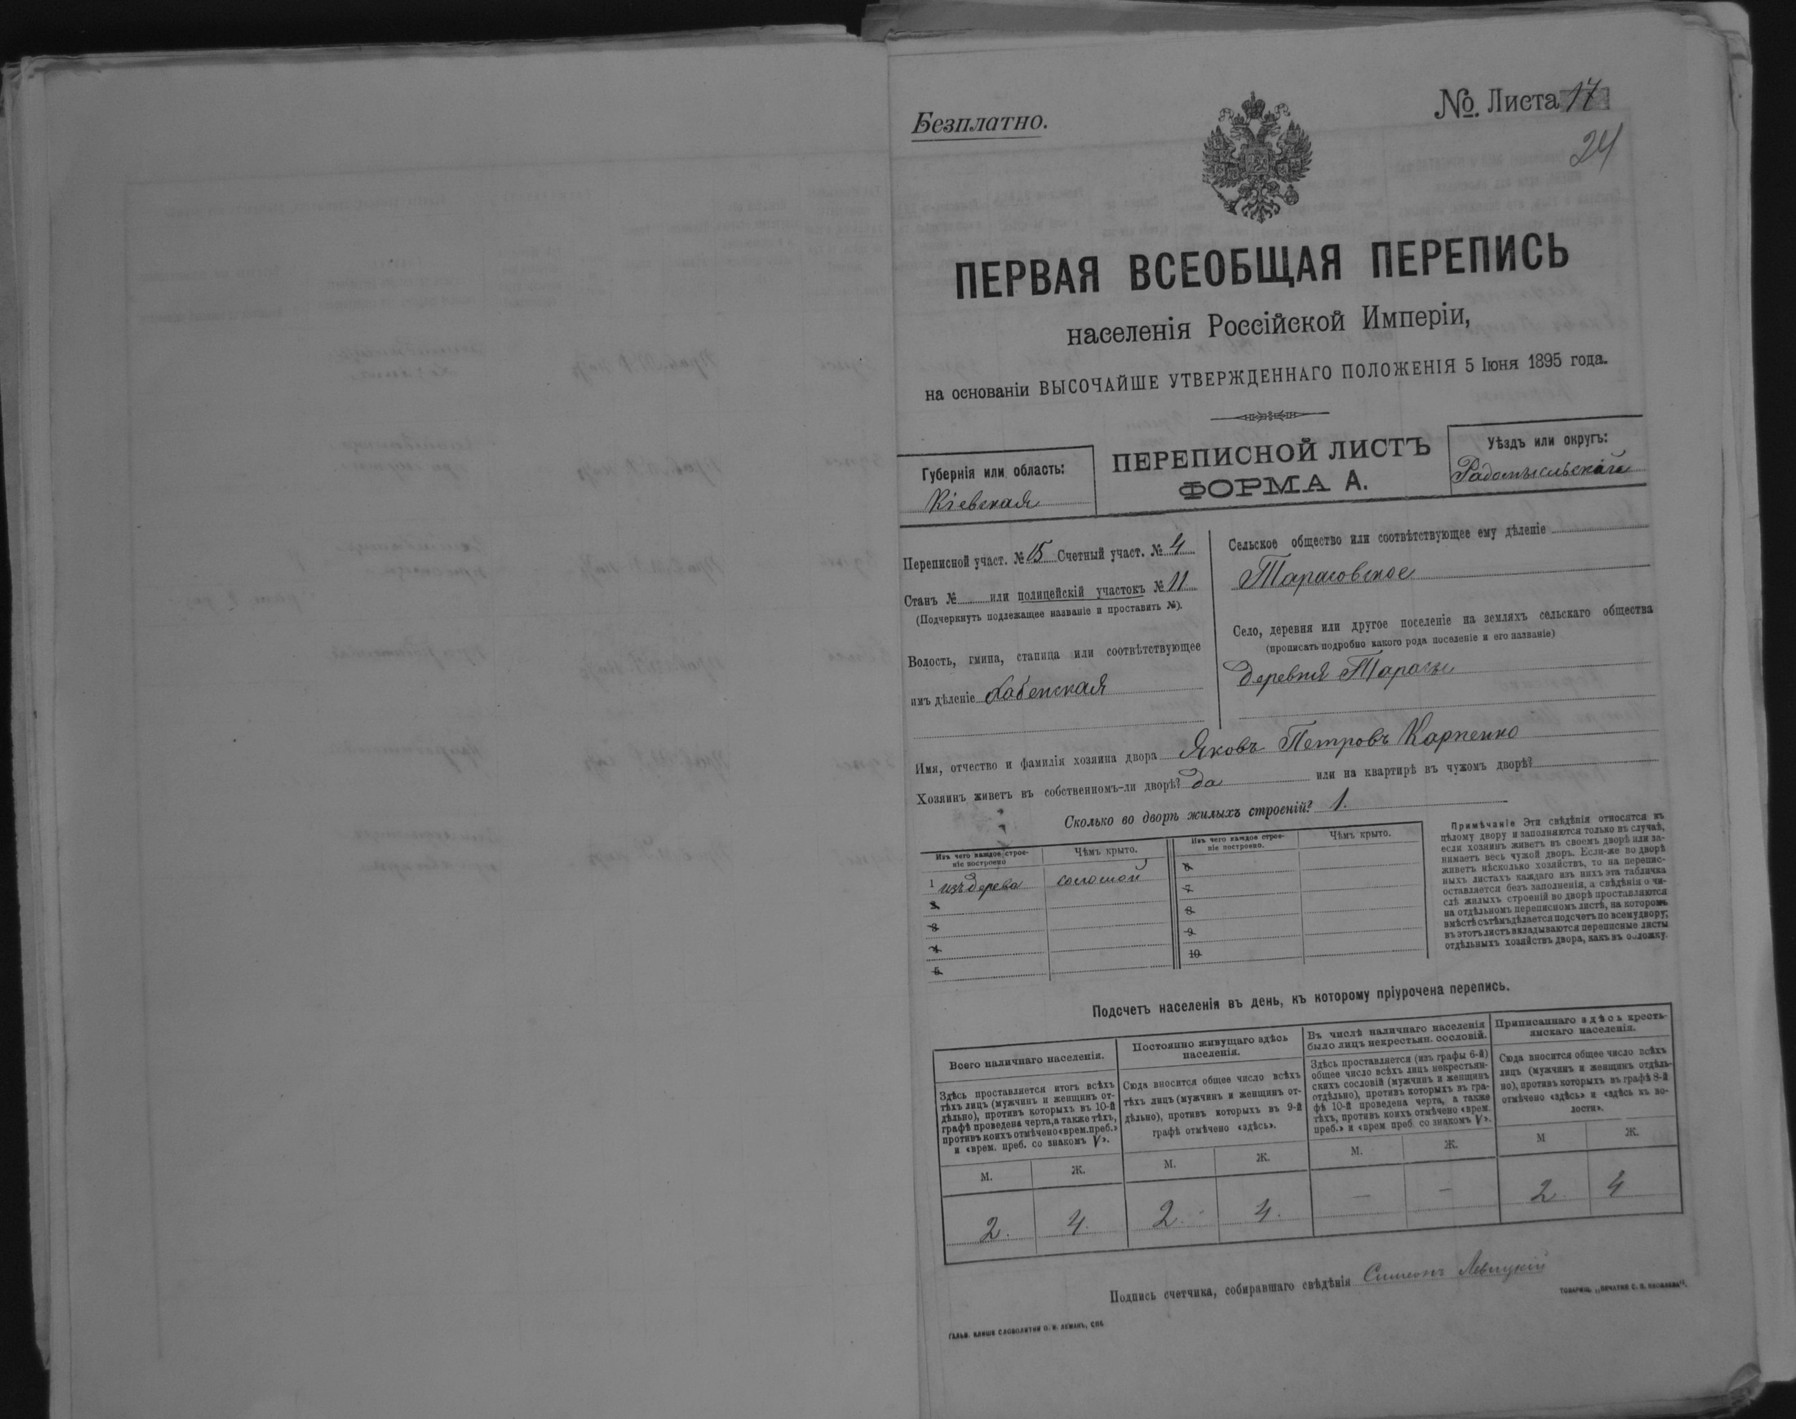 Безплатно.
№. Листа 17
24
ПЕРВАЯ ВСЕОБЩАЯ ПЕРЕПИСЬ
населенія Россійской Имперіи,
на основаніи ВЫСОЧАЙШЕ УТВЕРЖДЕННАГО ПОЛОЖЕНІЯ 5 Іюня 1895 года.
Губернія или область:
Кіевская
ПЕРЕПИСНОЙ ЛИСТЪ
ФОРМА А.
Уѣздъ или округъ:
Радомысльскій
Переписной участ. № 15 Счетный участ. № 4
Станъ № или полицейскій участокъ № 11
(Подчеркнуть подлежащее названіе и проставить №).
Волость, гмина, станица или соотвѣтствующее
имъ дѣленіе Хабенская
Сельское общество или соотвѣтствующее ему дѣленіе
Тарасовское
Село, деревня или другое поселеніе на земляхъ сельскаго общества
(прописать подробно какого рода поселеніе и его названіе)
деревня Тарасы
Имя, отчество и фамилія хозяина двора Яковъ Петровъ Карпенко
Хозяинъ живетъ въ собственномъ-ли дворѣ? да или на квартирѣ въ чужомъ дворѣ?
Сколько во дворѣ жилыхъ строеній? 1.
Изъ чего каждое строе-
ніе построено
Чѣмъ крыто.
1 изъ дерева соломой
2.
3
4.
5.
Изъ чего каждое строе-
ніе построено.
Чѣмъ крыто.
6.
7.
8.
9.
10.
Примѣчаніе Эти свѣдѣнія относятся къ
цѣлому двору и заполняются только въ случаѣ,
если хозяинъ живетъ въ своемъ дворѣ или за-
нимаетъ весь чужой дворъ. Если-же во дворѣ
живетъ нѣсколько хозяйствъ, то на перепис-
ныхъ листахъ каждаго изъ нихъ эта табличка
оставляется безъ заполненія, а свѣдѣнія о чи-
слѣ жилыхъ строеній во дворѣ проставляются
на отдѣльномъ переписномъ листѣ, на которомъ
вмѣстѣ съ тѣмъ дѣлается подсчетъ по всему двору;
въ этотъ листъ вкладываются переписные листы
отдѣльныхъ хозяйствъ двора, какъ въ обложку.
Подсчетъ населенія въ день, къ которому пріурочена перепись.
Всего наличнаго населенія.
Здѣсь проставляется итогъ всѣхъ
тѣхъ лицъ (мужчинъ и женщинъ от-
дѣльно), противъ которыхъ въ 10-й
графѣ проведена черта, а также тѣхъ,
противъ коихъ отмѣчено «врем. преб.»
и «врем. преб. со знакомъ V».
М. Ж.
2. 4.
Постоянно живущаго здѣсь
населенія.
Сюда вносится общее число всѣхъ
тѣхъ лицъ (мужчинъ и женщинъ от-
дѣльно), противъ которыхъ въ 9-й
графѣ отмѣчено «здѣсь».
М. Ж.
2. 4.
Въ числѣ наличнаго населенія
было лицъ некрестьян. сословій.
Здѣсь проставляется (изъ графы 6-й)
общее число всѣхъ лицъ некрестьян-
скихъ сословій (мужчинъ и женщинъ
отдѣльно), противъ которыхъ въ гра-
фѣ 10-й проведена черта, а также
тѣхъ, противъ коихъ отмѣчено «врем.
преб.» и «врем преб. со знакомъ V».
М. Ж.
— —
Приписаннаго здѣсь кресть-
янскаго населенія.
Сюда вносится общее число всѣхъ
лицъ (мужчинъ и женщинъ отдѣль-
но), противъ которыхъ въ графѣ 8-й
отмѣчено «здѣсь» и «здѣсь въ во-
лости».
М Ж.
2. 4
Подпись счетчика, собиравшаго свѣдѣнія Симеонъ Левицкій
ГАЛЬВ. КЛИШЕ СЛОВОЛИТНИ О. И. ЛЕМАНЪ, СПБ
ТОВАРИЩ. „ПЕЧАТНЯ С. П. ЯКОВЛЕВА".